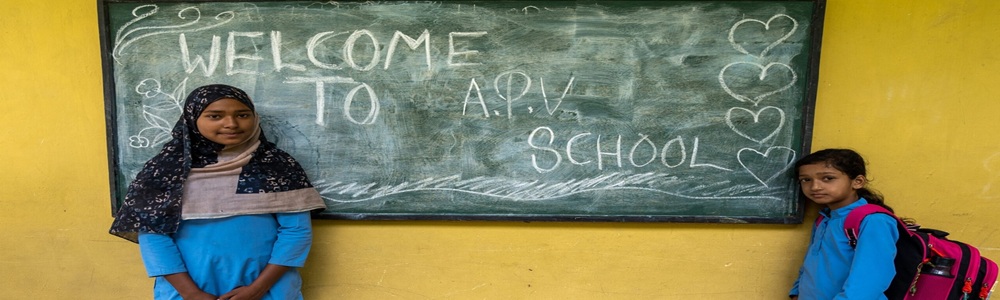 WELCOME
TO A.P.V.
SCHOOL